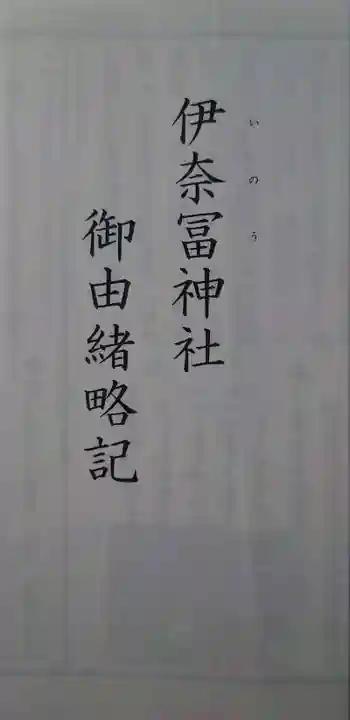 伊奈冨神社
いのう
御由緒略記